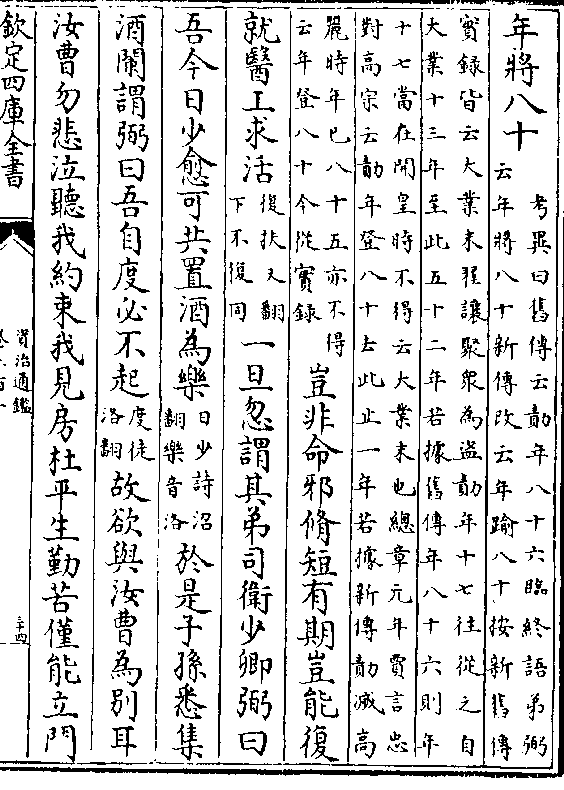 年將八十考異曰舊傳云勣年八十六臨終語弟弼
云年將八十新傳改云年踰八十按新舊傳
實録皆云大業末翟讓聚衆為盜勣年十七往從之自
大業十三年至此五十二年若據舊傳年八十六則年
十七當在開皇時不得云大業末也總章元年賈言忠
對高宗云勣年登八十去此止一年若據新傳勣滅高
麗時年已八十五亦不得
云年登八十今從實録豈非命邪脩短有期豈能復
就醫工求活復扶又翻下不復同一旦忽謂其弟司衛少卿弼曰
吾今日少愈可共置酒為樂日少詩沼翻樂音洛於是子孫悉集
酒闌謂弼曰吾自度必不起度徒洛翻故欲與汝曹為别耳
汝曹勿悲泣聽我約束我見房杜平生勤苦僅能立門
欽定四庫全書
資治通鑑